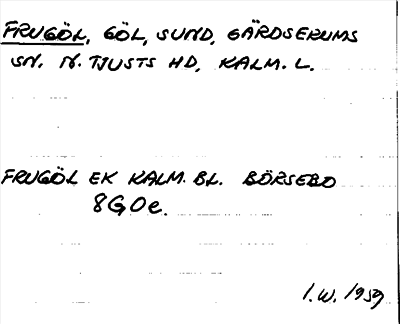 FRUGÖL, GÖL, SUND, GÄRDSERUMS
SN. N. TJUSTS HD, KALM. L.
FRUGÖL EK KALM. BL. BÖRSEBO
8G0e.
I.W. 1959